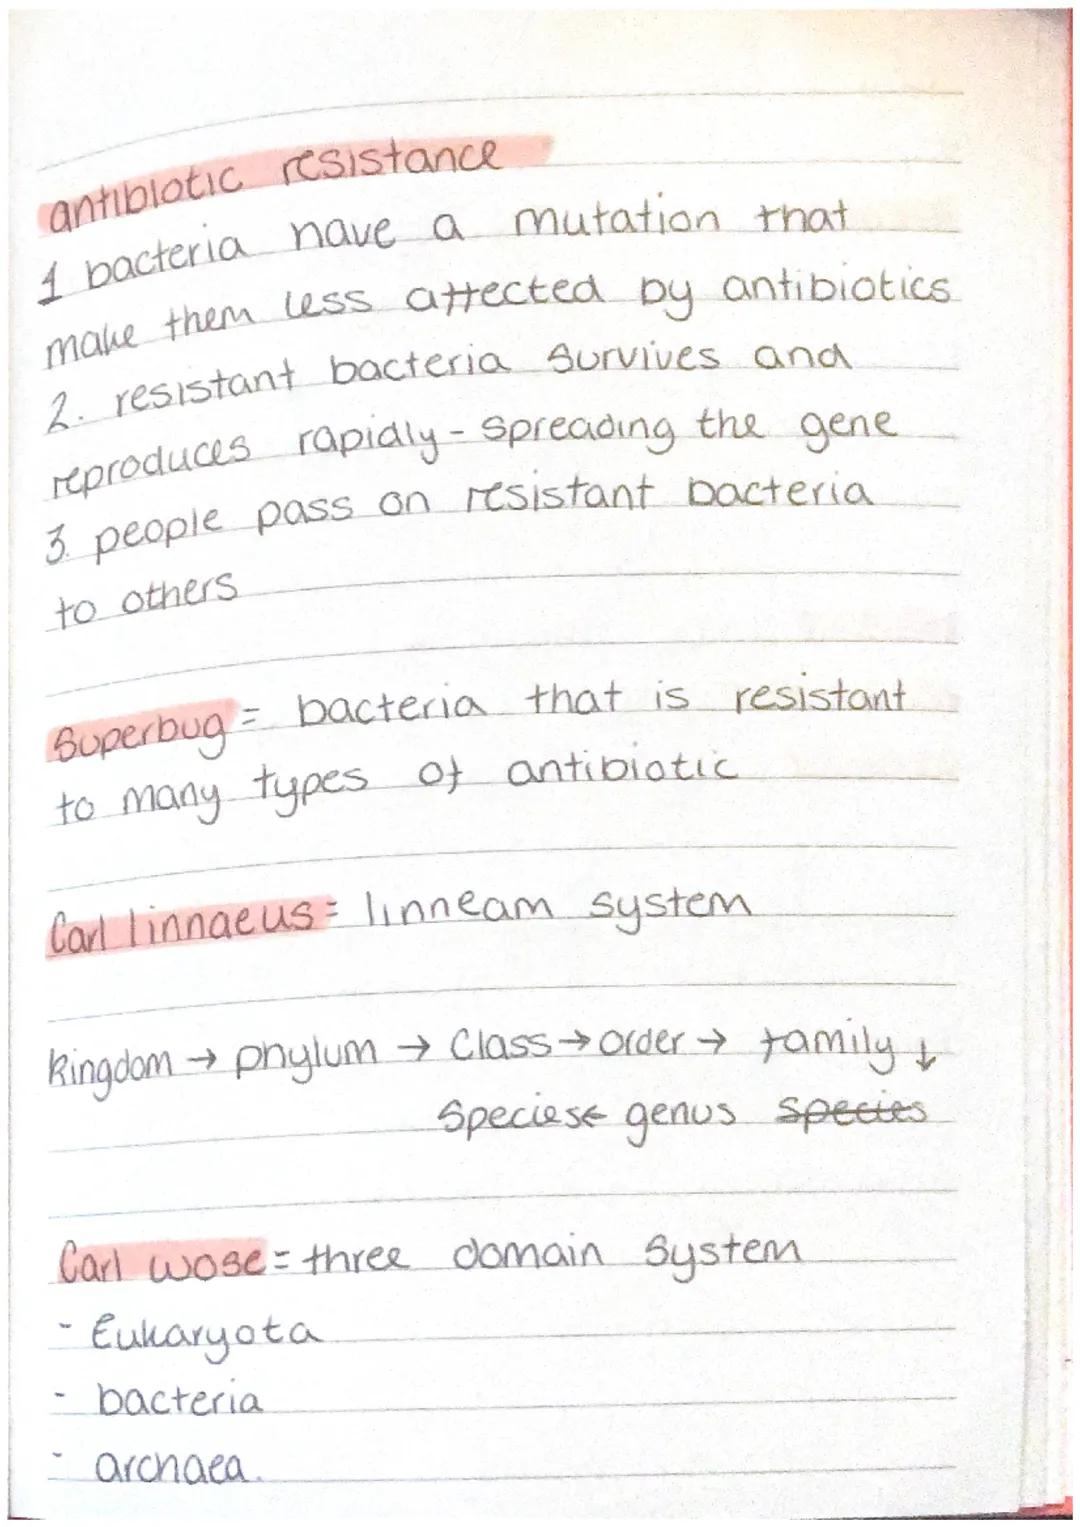 antibiotic resistance
1 bacteria have a mutation that
make them less affected by antibiotics
2. resistant bacteria survives and
reproduces rapidly - spreading the gene
3. people pass on resistant bacteria
to others
Superbug = bacteria that is resistant
to many types of antibiotic
Carl linnaeus = linneam system
kingdom → phylum → Class → order → family ↓
Species ← genus ~~species~~
Carl wose = three domain system
- Eukaryota
- bacteria
- archaea.